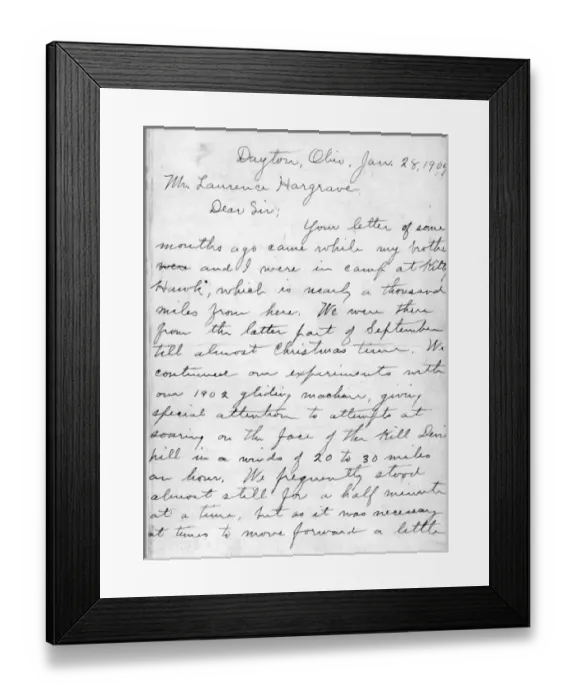 Dayton, Ohio, Jan. 28, 190
Mr. Laurence Hargrave,
Dear Sir;
Your letter of some
months ago came while my brothe
were and I were in camp at Kitty
Hawk, which is nearly a thousand
miles from here. We were there
from the latter part of September
till almost Christmas time. We
continued our experiments with
our 1902 gliding machine, giving
special attention to attempts at
soaring on the face of the Kill Devi
hill in a winds of 20 to 30 miles
an hour. We frequently stood
almost still for a half minute
at a time, but as it was necessary
at times to move forward a little